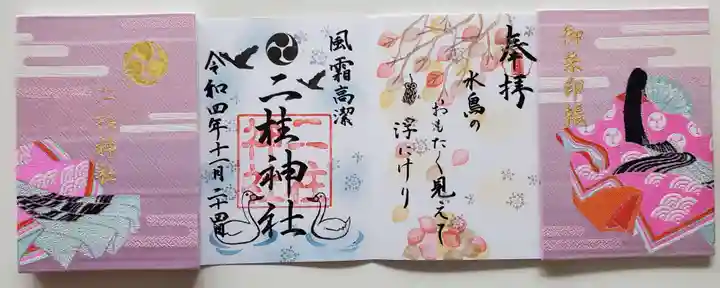 御朱印帳
奉拝
水鳥の
おもたく見えて
浮にけり
風霜高潔
二柱神社
二柱神社
令和四年十一月二十四日
二柱神社